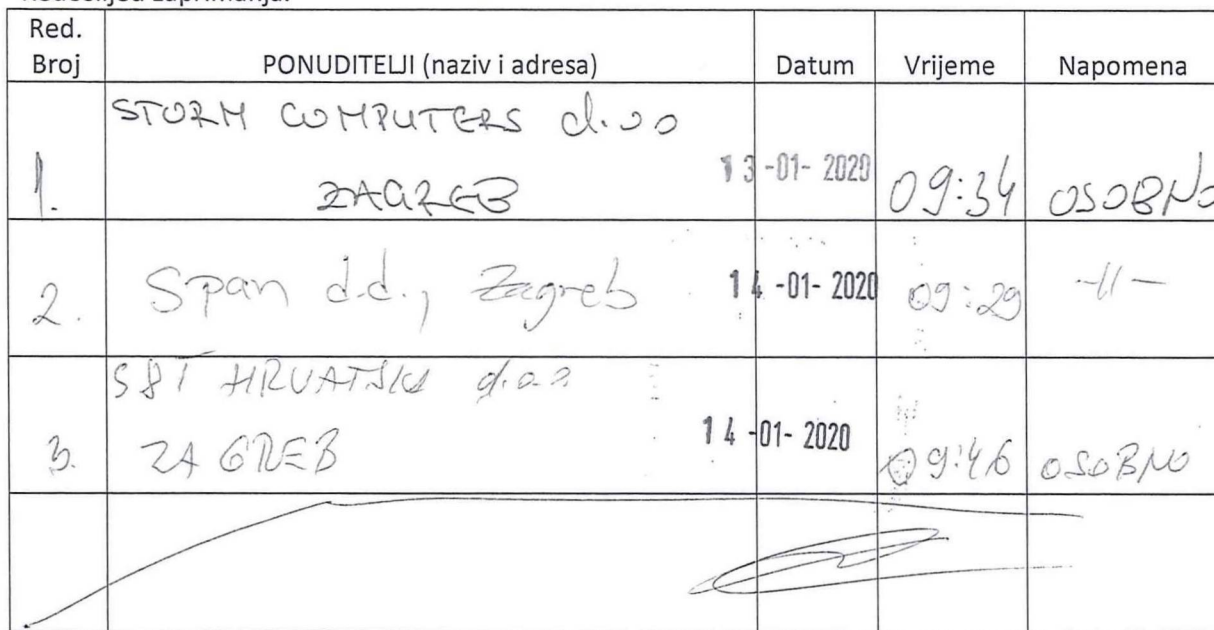 Redoslijed zaprimanja:
Red.
Broj PONUDITELJI (naziv i adresa) Datum Vrijeme Napomena
STORM COMPUTERS d.o.o
1. ZAGREB 13-01-2020 09:34 OSOBNO
2. Span d.d., Zagreb 14-01-2020 09:29 -||-
S&T HRVATSKA d.o.o
3. ZAGREB 14-01-2020 09:46 OSOBNO